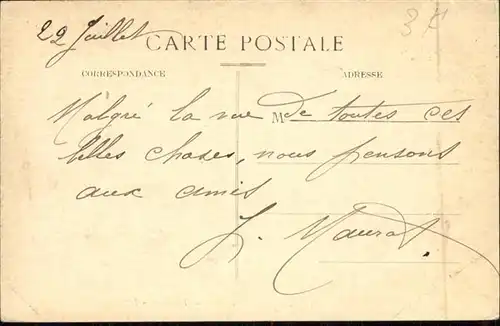 22 Juillet
3 €
CARTE POSTALE
CORRESPONDANCE
ADRESSE
Malgré la vue de toutes ces
M
belles choses, nous pensons
aux amis